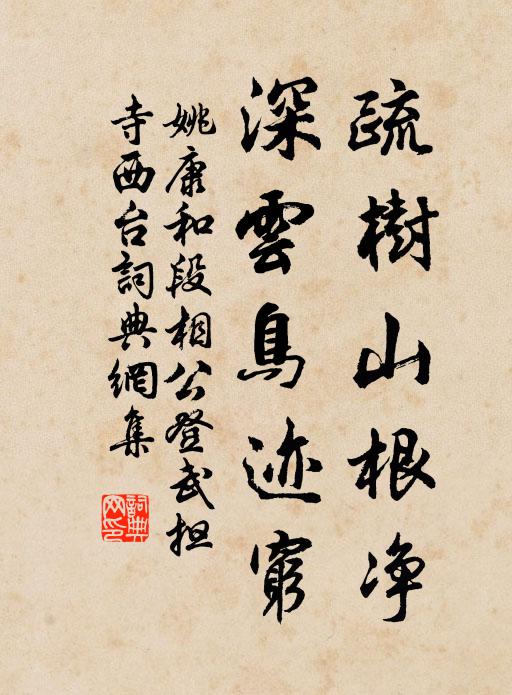 疏樹山根净
深雲鳥迹窮
姚康和段相公登武担
寺西台詞典網集
詞典
网印